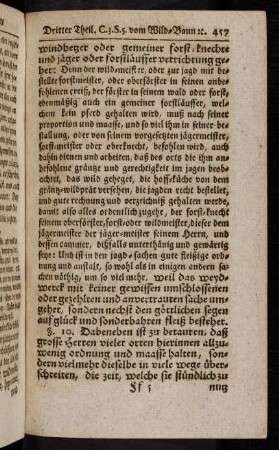 Dritter Theil. C.3.S.5. vom Wild-Bann ꝛc. 457
windheger oder gemeiner forst-knecht
und jäger oder forstläuffer verrichtung ge-
het: Denn der wild-meister, oder zur jagd mit be-
stellte forstmeister, oder oberförster in seinen anbe-
fohlenen creiß, der förster in seinem wald oder forst,
ebenmäßig auch ein gemeiner forstläuffer, wel-
chem kein pferd gehalten wird, muß nach seiner
proportion und maasse, und so viel ihm in seiner be-
stallung, oder von seinem vorgesetzten jägermeister,
forst-meister oder oberknecht, befohlen wird, auch
dahin dienen und arbeiten, daß des orts die ihm an-
befohlene gräntz und gerechtigkeit im jagen beob-
achtet, das wild geheget, die hoff-küche von dem
gräntz-wildprät versehen, die jagden recht bestellet,
und gute rechnung und verzeichniß gehalten werde,
damit also alles ordentlich zugehe, der forst-knecht
seinem oberförster, forst- oder wildmeister, dieser dem
jägermeister der jäger-meister seinem Herrn, und
dessen cammer, dißfalls unterthänig und gewärtig
seye: Und ist in den jagd-sachen gute fleißige ord-
nung und anstalt, so wohl als in einigen andern sa-
chen nöthig, um so viel mehr, weil das weyd-
werck mit keiner gewissen umschlossenen
oder gezehlten und anvertrauten sache um-
gehet, sondern nechst den göttlichen segen
auf glück und sonderbahren fleiß bestehet.
§. 10. Dabeneben ist zu betauren, daß
grosse Herren vieler orten hierinnen allzu-
wenig ordnung und maasse halten, son-
dern vielmehr dieselbe in viele wege über-
schreiten, die zeit, welche sie stündlich zu
Ff 5
nutz